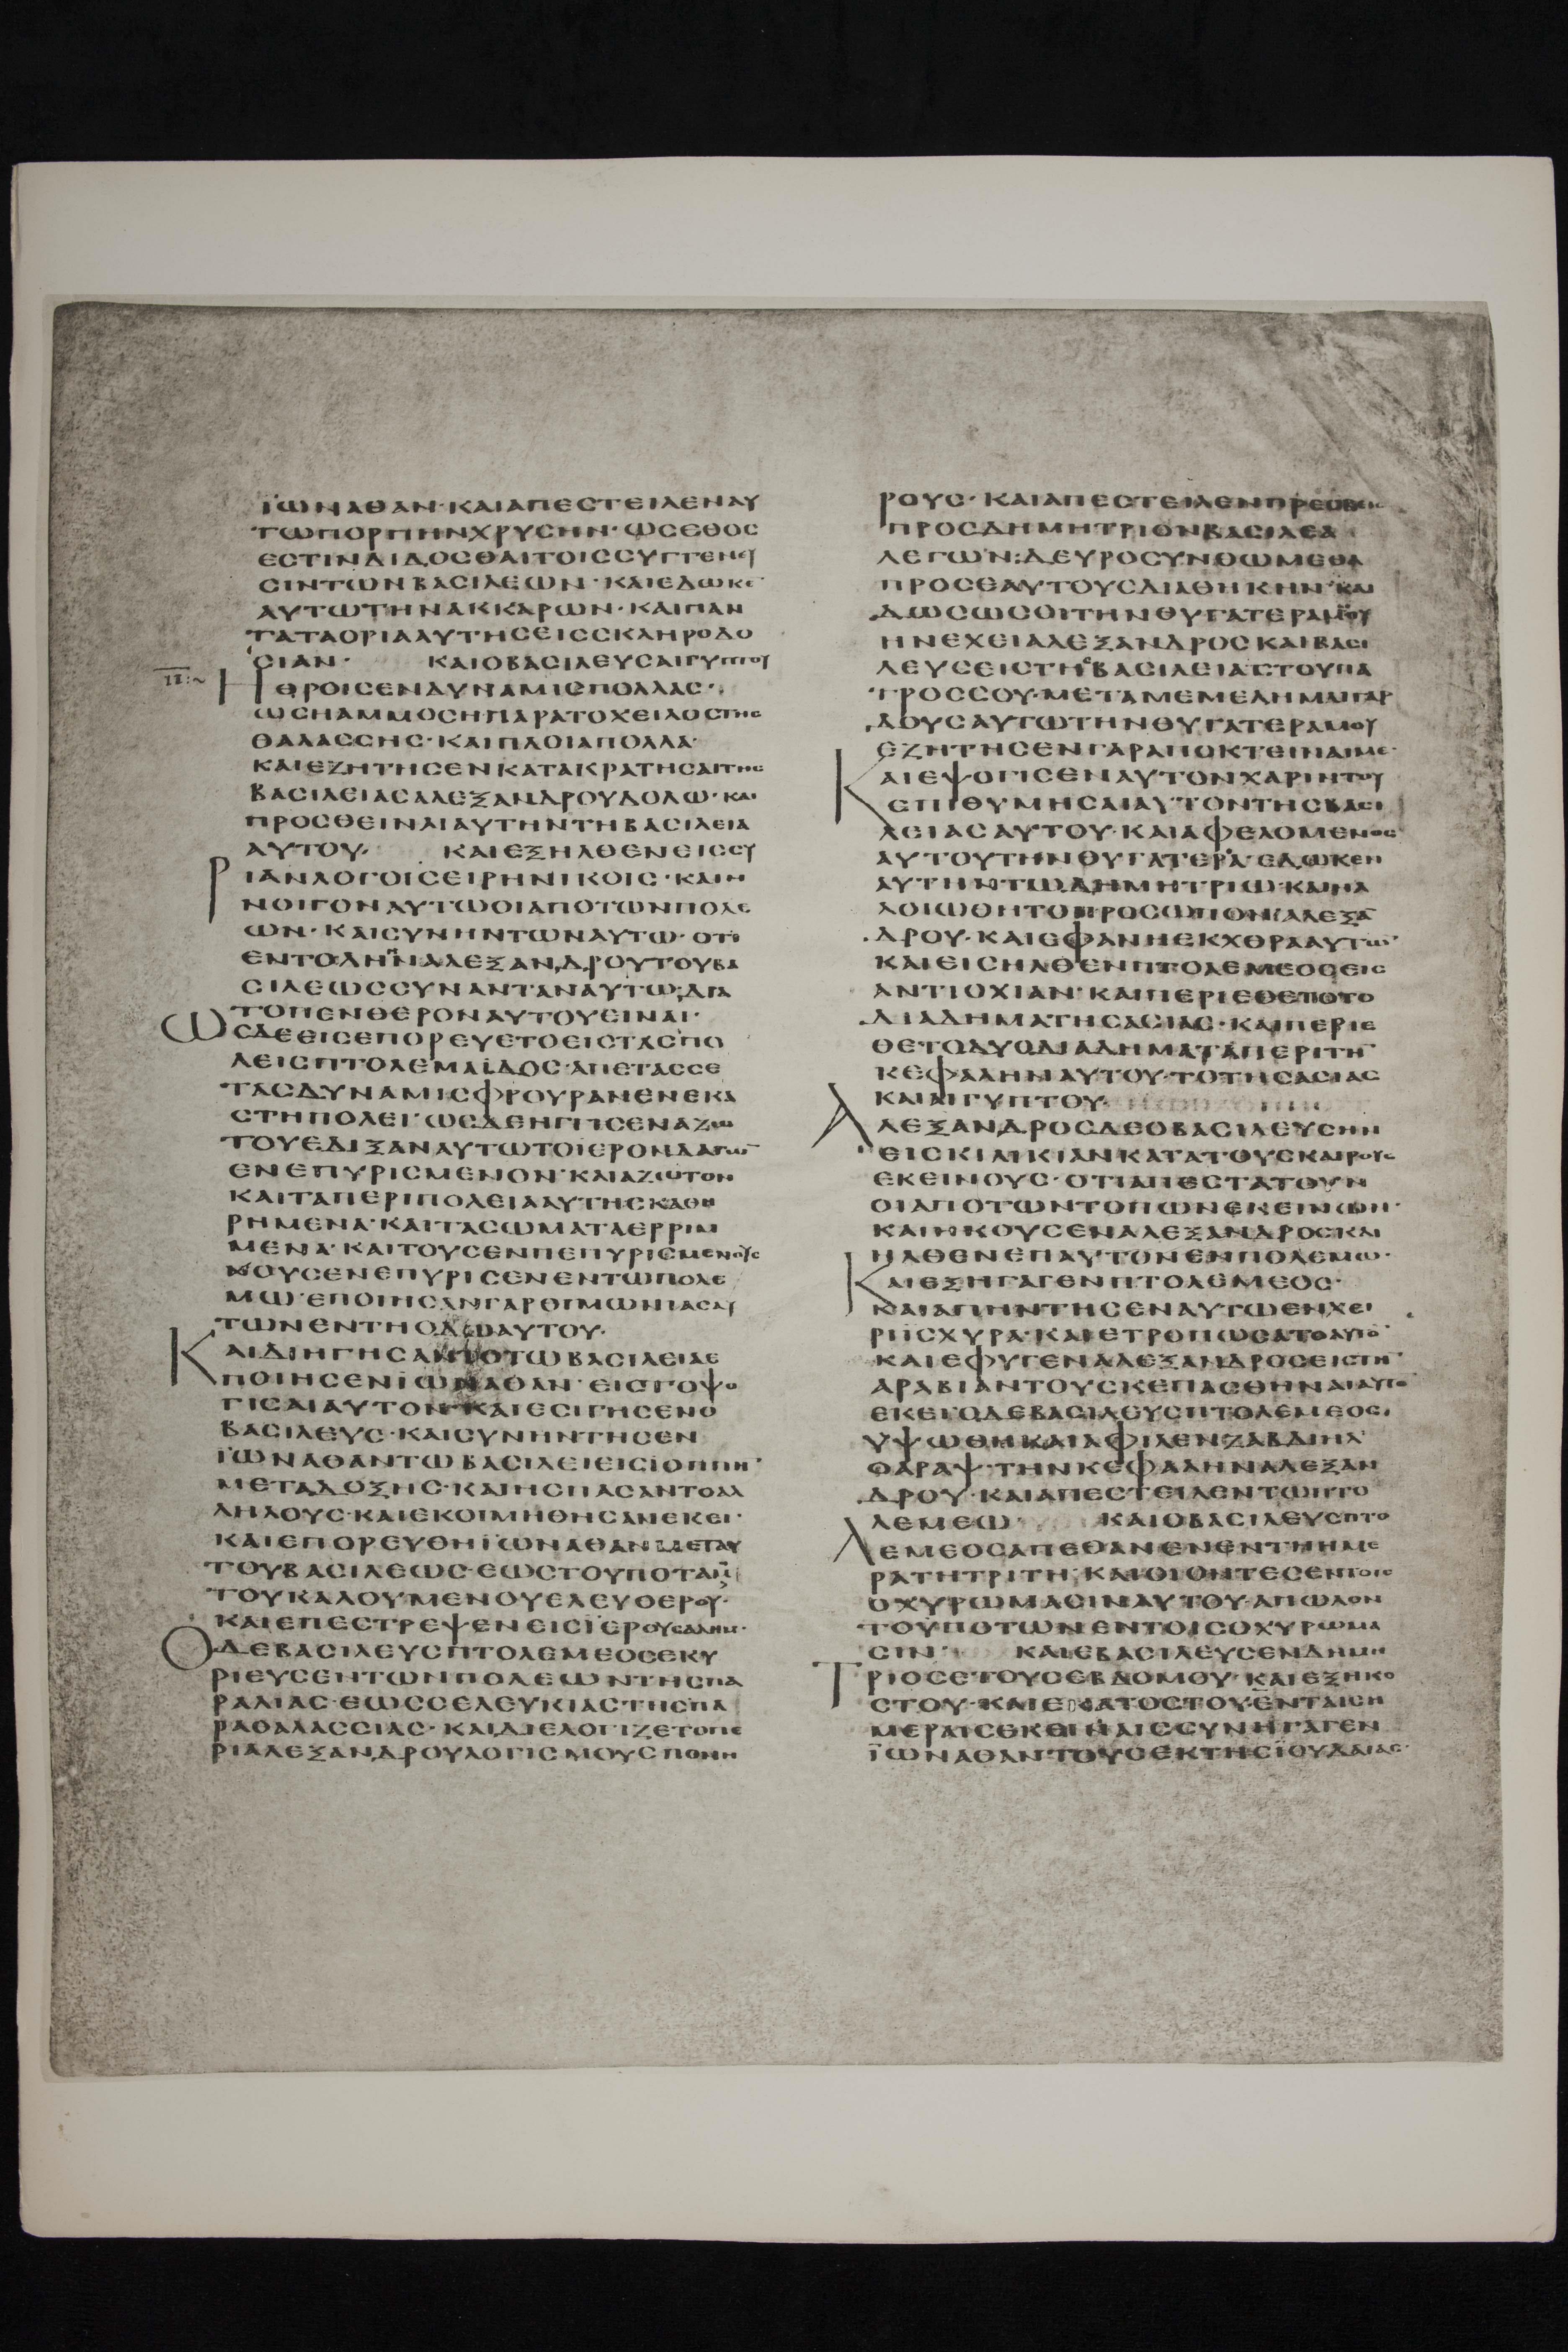 ΪΩΝΑΘΑΝ·ΚΑΙΑΠΕΣΤΕΙΛΕΝΑΥ
ΤΩΠΟΡΠΗΝΧΡΥCΗΝ·ΩCΕΘΟC
ΕCΤΙΝΔΙΔΟCΘΑΙΤΟΙCCΥΓΓΕΝΕΥ
CΙΝΤΩΝΒΑCΙΛΕΩΝ·ΚΑΙΕΔΩΚΕ
ΑΥΤΩΤΗΝΑΚΚΑΡΩΝ·ΚΑΙΠΑΝ
ΤΑΤΑΟΡΙΑΑΥΤΗCΕΙCCΚΛΗΡΟΔΟ
CΙΑΝ· ΚΑΙΟΒΑCΙΛΕΥCΑΙΓΥΠΤΟΥ
ΗΘΡΟΙCΕΝΔΥΝΑΜΙCΠΟΛΛΑC·
ΩCΗΑΜΜΟCΗΠΑΡΑΤΟΧΕΙΛΟCΤΗC
ΘΑΛΑCCΗC·ΚΑΙΠΛΟΙΑΠΟΛΛΑ·
ΚΑΙΕΖΗΤΗCΕΝΚΑΤΑΚΡΑΤΗCΑΙΤΗC
ΒΑCΙΛΕΙΑCΑΛΕΞΑΝΔΡΟΥΔΟΛΩ·ΚΑΙ
ΠΡΟCΘΕΙΝΑΙΑΥΤΗΝΤΗΒΑCΙΛΕΙΑ
ΑΥΤΟΥ· ΚΑΙΕΞΗΛΘΕΝΕΙCCΥ
ΡΙΑΝΛΟΓΟΙCΕΙΡΗΝΙΚΟΙC·ΚΑΙΗ
ΝΟΙΓΟΝΑΥΤΩΟΙΑΠΟΤΩΝΠΟΛΕ
ΩΝ·ΚΑΙCΥΝΗΝΤΩΝΑΥΤΩ·ΟΤΙ
ΕΝΤΟΛΗΗΝΑΛΕΞΑΝΔΡΟΥΤΟΥΒΑ
CΙΛΕΩCCΥΝΑΝΤΑΝΑΥΤΩ·ΔΙΑ
ΤΟΠΕΝΘΕΡΟΝΑΥΤΟΥΕΙΝΑΙ·
ΩCΔΕΕΙCΕΠΟΡΕΥΕΤΟΕΙCΤΑCΠΟ
ΛΕΙCΠΤΟΛΕΜΑΙΔΟC·ΑΠΕΤΑCCΕ
ΤΑCΔΥΝΑΜΙCΦΡΟΥΡΑΝΕΝΕΚΑ
CΤΗΠΟΛΕΙ·ΩCΔΕΗΓΓΙCΕΝΑΖΩ
ΤΟΥΕΔΙΞΑΝΑΥΤΩΤΟΙΕΡΟΝΔΑΓΩ
ΕΝΕΠΥΡΙCΜΕΝΟΝ·ΚΑΙΑΖΩΤΟΝ
ΚΑΙΤΑΠΕΡΙΠΟΛΕΙΑΑΥΤΗCΚΑΘΗ
ΡΗΜΕΝΑ·ΚΑΙΤΑCΩΜΑΤΑΕΡΡΙΜ
ΜΕΝΑ·ΚΑΙΤΟΥCΕΝΠΕΠΥΡΙCΜΕΝΟΥC
ΝΟΥCΕΝΕΠΥΡΙCΕΝΕΝΤΩΠΟΛΕ
ΜΩ·ΕΠΟΙΗCΑΝΓΑΡΘΙΜΩΝΙΑCΑΥ
ΤΩΝΕΝΤΗΟΔΩΑΥΤΟΥ·
ΚΑΙΔΙΗΓΗCΑΝΤΟΤΩΒΑCΙΛΕΙΑΕ
ΠΟΙΗCΕΝΪΩΝΑΘΑΝ·ΕΙCΤΟΨΟ
ΓΙCΑΙΑΥΤΟΝ·ΚΑΙΕCΙΓΗCΕΝΟ
ΒΑCΙΛΕΥC·ΚΑΙCΥΝΗΝΤΗCΕΝ
ΪΩΝΑΘΑΝΤΩΒΑCΙΛΕΙΕΙCΪΟΠΠΗ
ΜΕΤΑΔΟΞΗC·ΚΑΙΗCΠΑCΑΝΤΟΑΛ
ΛΗΛΟΥC·ΚΑΙΕΚΟΙΜΗΘΗCΑΝΕΚΕΙ·
ΚΑΙΕΠΟΡΕΥΘΗΪΩΝΑΘΑΝΜΕΤΑΥ
ΤΟΥΒΑCΙΛΕΩC·ΕΩCΤΟΥΠΟΤΑΜ
ΤΟΥΚΑΛΟΥΜΕΝΟΥΕΛΕΥΘΕΡΟΥ·
ΚΑΙΕΠΕCΤΡΕΨΕΝΕΙCΪΕΡΟΥCΑΛΗΜ·
ΟΔΕΒΑCΙΛΕΥCΠΤΟΛΕΜΕΟCΕΚΥ
ΡΙΕΥCΕΝΤΩΝΠΟΛΕΩΝΤΗCΠΑ
ΡΑΛΙΑC·ΕΩCCΕΛΕΥΚΙΑCΤΗCΠΑ
ΡΑΘΑΛΑCCΙΑC·ΚΑΙΔΙΕΛΟΓΙΖΕΤΟΠΕ
ΡΙΑΛΕΞΑΝΔΡΟΥΛΟΓΙCΜΟΥCΠΟΝΗ
ΡΟΥC·ΚΑΙΑΠΕCΤΕΙΛΕΝΠΡΕCΒΕΙC
ΠΡΟCΔΗΜΗΤΡΙΟΝΒΑCΙΛΕΑ
ΛΕΓΩΝ:ΔΕΥΡΟCΥΝΘΩΜΕΘΑ
ΠΡΟCΕΑΥΤΟΥCΔΙΑΘΗΚΗΝ·ΚΑΙ
ΔΩCΩCΟΙΤΗΝΘΥΓΑΤΕΡΑΜΟΥ
ΗΝΕΧΕΙΑΛΕΞΑΝΔΡΟCΚΑΙΒΑCΙ
ΛΕΥCΕΙCΤΗCΒΑCΙΛΕΙΑCΤΟΥΠΑ
ΤΡΟCCΟΥ·ΜΕΤΑΜΕΜΕΛΗΜΑΙΓΑΡ
ΔΟΥCΑΥΤΩΤΗΝΘΥΓΑΤΕΡΑΜΟΥ
ΕΖΗΤΗCΕΝΓΑΡΑΠΟΚΤΕΙΝΑΙΜΕ·
ΚΑΙΕΨΟΓΙCΕΝΑΥΤΟΝΧΑΡΙΝΤΟΥ
ΕΠΙΘΥΜΗCΑΙΑΥΤΟΝΤΗCΒΑCΙ
ΛΕΙΑCΑΥΤΟΥ·ΚΑΙΑΦΕΛΟΜΕΝΟC
ΑΥΤΟΥΤΗΝΘΥΓΑΤΕΡΑ·ΕΔΩΚΕΝ
ΑΥΤΗΝΤΩΔΗΜΗΤΡΙΩ·ΚΑΙΗΛ
ΛΟΙΩΘΗΤΟΠΡΟCΩΠΟΝΑΛΕΞΑ
ΔΡΟΥ·ΚΑΙΕΦΑΝΗΕΚΧΘΡΑΑΥΤΩ·
ΚΑΙΕΙCΗΛΘΕΝΠΤΟΛΕΜΕΟCΕΙC
ΑΝΤΙΟΧΙΑΝ·ΚΑΙΠΕΡΙΕΘΕΤΟΤΟ
ΔΙΑΔΗΜΑΤΗCΑCΙΑC·ΚΑΙΠΕΡΙΕ
ΘΕΤΟΔΥΟΔΙΑΔΗΜΑΤΑΠΕΡΙΤΗ
ΚΕΦΑΛΗΝΑΥΤΟΥ·ΤΟΤΗCΑCΙΑC
ΚΑΙΑΙΓΥΠΤΟΥ·
ΑΛΕΞΑΝΔΡΟCΔΕΟΒΑCΙΛΕΥCΗΝ
ΕΙCΚΙΛΙΚΙΑΝΚΑΤΑΤΟΥCΚΑΙΡΟΥC
ΕΚΕΙΝΟΥC·ΟΤΙΑΠΕCΤΑΤΟΥΝ
ΟΙΑΠΟΤΩΝΤΟΠΩΝΕΚΕΙΝΩΝ·
ΚΑΙΗΚΟΥCΕΝΑΛΕΞΑΝΔΡΟCΚΑΙ
ΗΛΘΕΝΕΠΑΥΤΟΝΕΝΠΟΛΕΜΩ·
ΚΑΙΕΞΗΓΑΓΕΝΠΤΟΛΕΜΕΟC·
ΚΑΙΑΠΗΝΤΗCΕΝΑΥΤΩΕΝΧΕΙ
ΡΙΪCΧΥΡΑ·ΚΑΙΕΤΡΟΠΩCΑΤΟΑΥΤΟ
ΚΑΙΕΦΥΓΕΝΑΛΕΞΑΝΔΡΟCΕΙCΤΗ
ΑΡΑΒΙΑΝΤΟΥCΚΕΠΑCΘΗΝΑΙΑΥΤΟ
ΕΚΕΙΟΔΕΒΑCΙΛΕΥCΠΤΟΛΕΜΕΟC·
ΥΨΩΘΗΚΑΙΑΦΙΛΕΝΖΑΒΔΙΗΛ
ΦΑΡΑΨ·ΤΗΝΚΕΦΑΛΗΝΑΛΕΞΑΝ
ΔΡΟΥ·ΚΑΙΑΠΕCΤΕΙΛΕΝΤΩΠΤΟ
ΛΕΜΕΩ· ΚΑΙΟΒΑCΙΛΕΥCΠΤΟ
ΛΕΜΕΟCΑΠΕΘΑΝΕΝΕΝΤΗΗΜΕ
ΡΑΤΗΤΡΙΤΗ·ΚΑΙΟΙΟΝΤΕCΕΝΤΟΙC
ΟΧΥΡΩΜΑCΙΝΑΥΤΟΥ·ΑΠΩΛΟΝ
ΤΟΥΠΟΤΩΝΕΝΤΟΙCΟΧΥΡΩΜΑ
CΙΝ· ΚΑΙΕΒΑCΙΛΕΥCΕΝΔΗΜΗ
ΤΡΙΟCΕΤΟΥCΕΒΔΟΜΟΥ·ΚΑΙΕΞΗΚΟ
CΤΟΥ·ΚΑΙΕΚΑΤΟCΤΟΥ·ΕΝΤΑΙCΗ
ΜΕΡΑΙCΕΚΕΙΝΑΙCCΥΝΗΓΑΓΕΝ
ΪΩΝΑΘΑΝΤΟΥCΕΚΤΗCΪΟΥΔΑΙΑC·